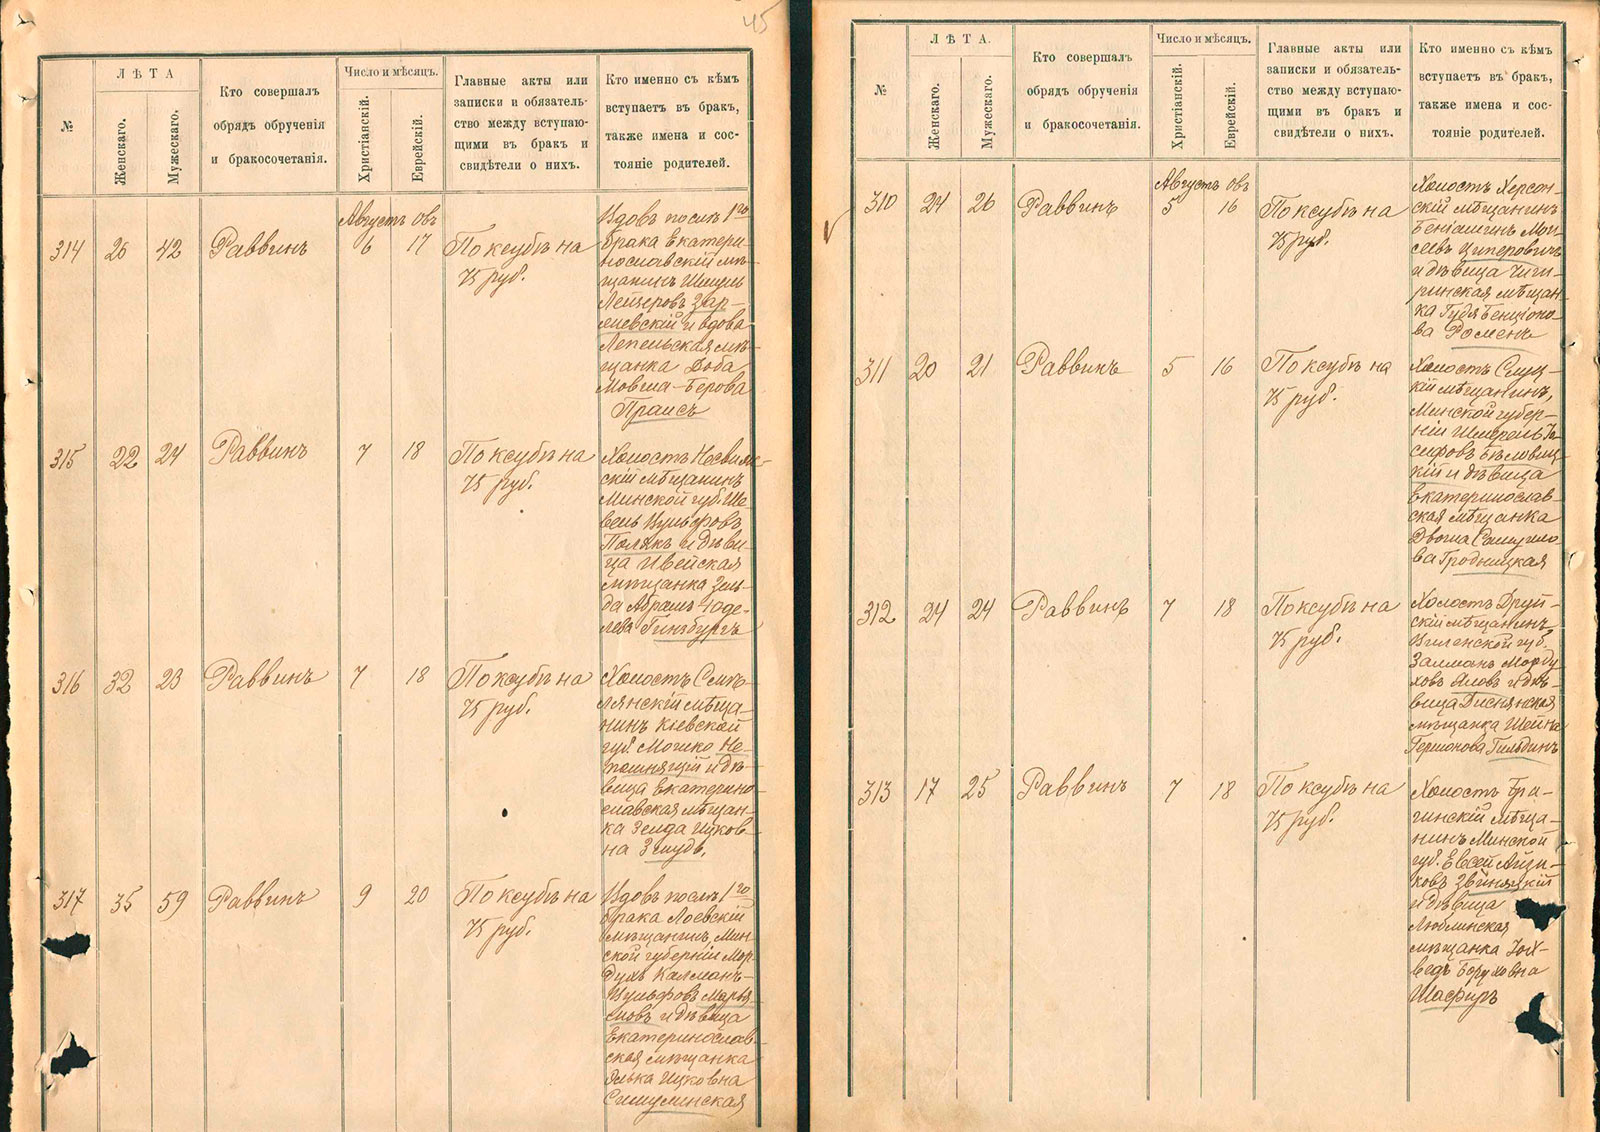 45
№
ЛѢТА
Женскаго.
Мужескаго.
Кто совершалъ
обрядъ обрученія
и бракосочетанія.
Число и мѣсяцъ.
Христіанскій.
Еврейскій.
Главные акты или
записки и обязатель-
ство между вступаю-
щими въ бракъ и
свидѣтели о нихъ.
Кто именно съ кѣмъ
вступаетъ въ бракъ,
также имена и сос-
тояніе родителей.
Августъ Овъ
314 26 42 Раввинъ 6 17
По ксубѣ на
75 руб.
Вдовъ послѣ 1го
брака Екатери-
нославскій мѣ-
щанинъ Шмуль
Лейзеровъ
и вдова
Лепельская мѣ-
щанка Доба
Мовша-Берова
Праисъ
315 22 24 Раввинъ 7 18
По ксубѣ на
75 руб.
Холостъ Несвиж-
скій мѣщанинъ
Минской губ. Ше-
вель Вульфовъ
Полякъ и дѣви-
ца Ивейская
мѣщанка Зель-
да Абрамъ-Юде-
лева Гинзбургъ
316 32 23 Раввинъ 7 18
По ксубѣ на
75 руб.
Холостъ Смѣ-
лянскій мѣща-
нинъ Кіевской
губ. Мошко Не-
помнящій и дѣ-
вица Екатерино-
славская мѣщан-
ка Зелда Ицков-
на Змудъ.
317 35 59 Раввинъ 9 20
По ксубѣ на
75 руб.
Вдовъ послѣ 1го
брака Лоевскій
мѣщанинъ, Мин-
ской губерніи Мор-
духъ Калманъ-
Вульфовъ Марья-
симовъ и дѣвица
Екатеринослав-
ская мѣщанка
Элька Ицковна
№
ЛѢТА.
Женскаго.
Мужескаго.
Кто совершалъ
обрядъ обрученія
и бракосочетанія.
Число и мѣсяцъ.
Христіанскій.
Еврейскій.
Главные акты или
записки и обязатель-
ство между вступаю-
щими въ бракъ и
свидѣтели о нихъ.
Кто именно съ кѣмъ
вступаетъ въ бракъ,
также имена и сос-
тояніе родителей.
Августъ Овъ
310 24 26 Раввинъ 5 16
По ксубѣ на
75 руб.
Холостъ Херсон-
скій мѣщанинъ
Беніаминъ Мои-
сеевъ Циперовичъ
и дѣвица Чиги-
ринская мѣщан-
ка Гудя Бенціоно-
ва Роменъ
311 20 21 Раввинъ 5 16
По ксубѣ на
75 руб.
Холостъ Слуц-
кій мѣщанинъ,
Минской губер-
ніи Шмерель Іо-
сифовъ Бѣловиц-
кій и дѣвица
Екатеринослав-
ская мѣщанка
Двойна Самуило-
ва Гродницкая
312 24 24 Раввинъ 7 18
По ксубѣ на
75 руб.
Холостъ Друй-
скій мѣщанинъ
Виленской губ.
Залманъ Морду-
ховъ Аловъ и дѣ-
вица Диснянская
мѣщанка Шейна
Гершонова Гильдинъ
313 17 25 Раввинъ 7 18
По ксубѣ на
75 руб.
Холостъ Бра-
гинскій мѣща-
нинъ Минской
губ. Евсей Айзи-
ковъ Звиняцкій
и дѣвица
Люблинская
мѣщанка Іох-
ведъ Боруховна
Шафиръ